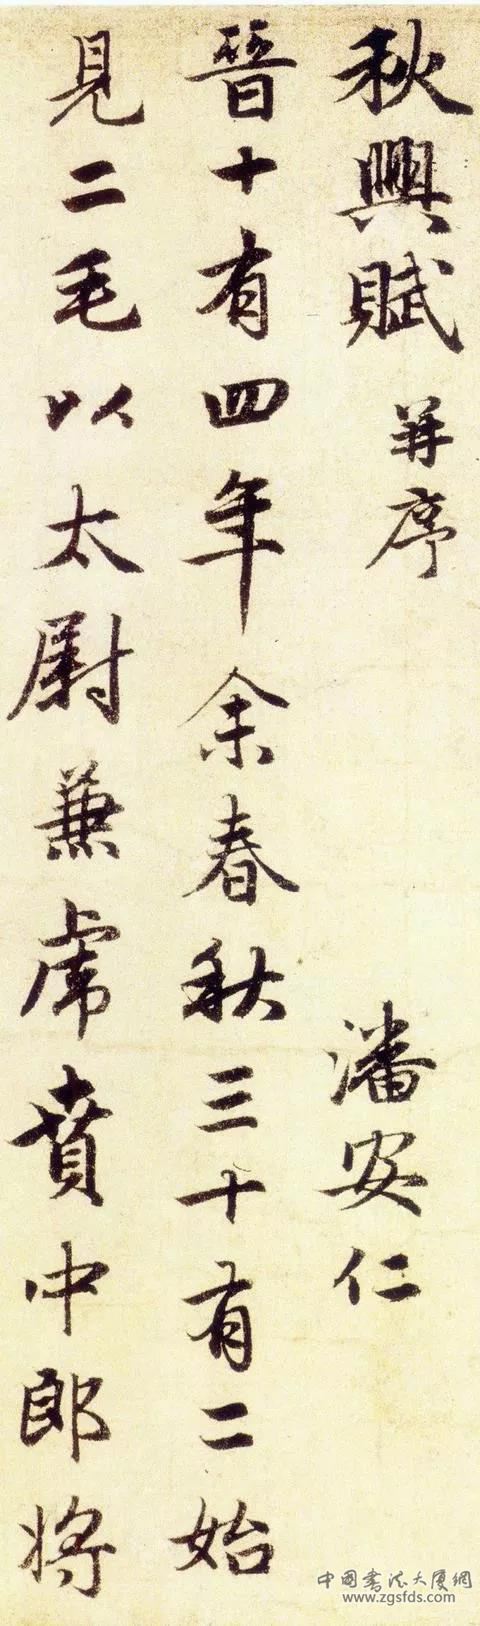 秋興賦 并序 潘安仁
晉十有四年余春秋三十有二始
見二毛以太尉兼虎賁中郎將
中国书法大厦網
www.zgsfds.com